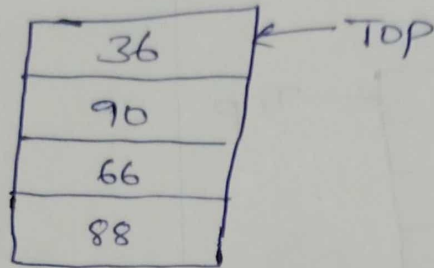 36 TOP
90
66
88